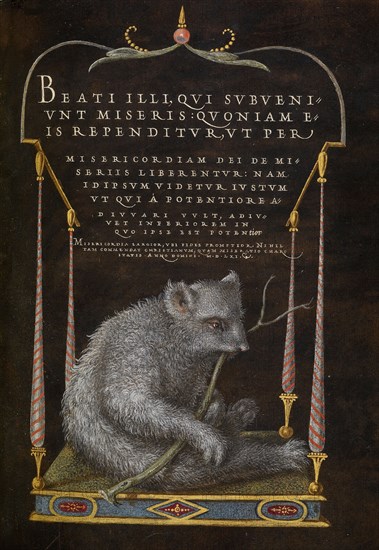 BEATI ILLI, QVI SVBVENI//
VNT MISERIS: QVONIAM E//
IS REPENDITVR, VT PER
MISERICORDIAM DEI DE MI//
SERIIS LIBERENTVR: NAM
IDIPSVM VIDETVR IVSTVM
VT QVI À POTENTIORE A//
DIVVARI VVLT, ADIV//
VET INFERIOREM IN
QVO IPSE EST POTENtior
MISERICORDIA LARGIOR, VBI FIDES PROMPTIOR. NIHIL
TAM COMMENDAT CHRISTIANVM, QVAM MISERATIO CHAR//
ITATIS. ANNO DOMINI. M.D.LXI.